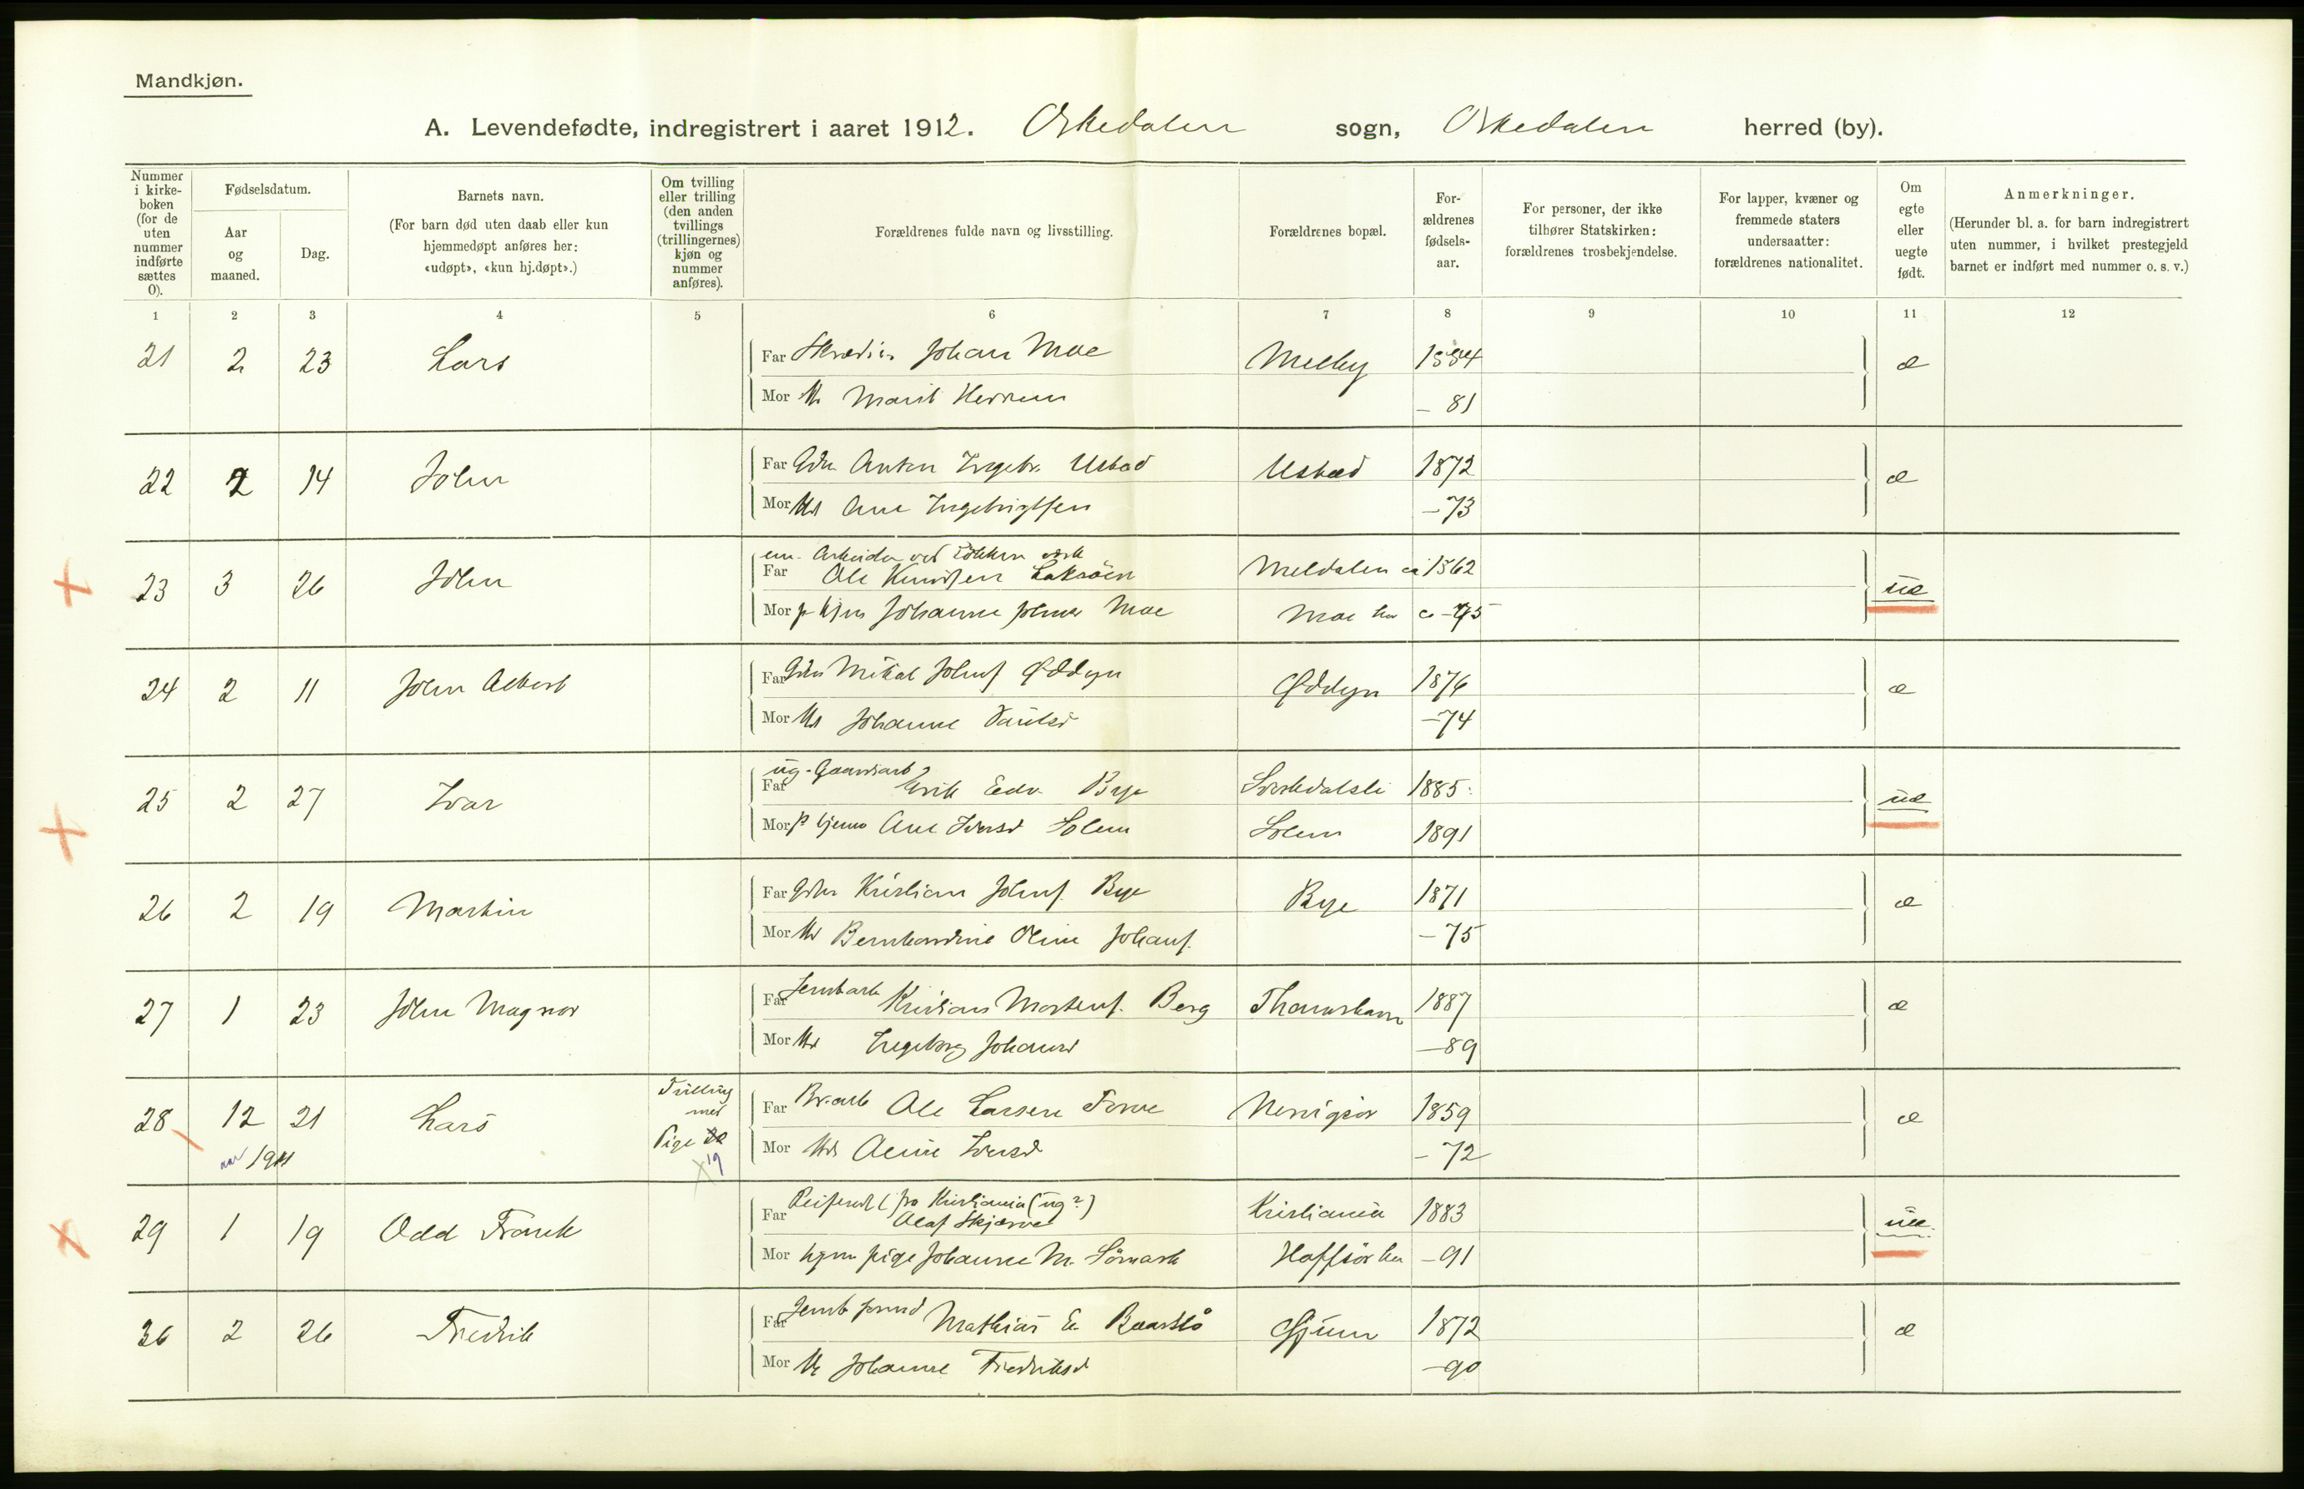 Mandkjøn.
A. Levendefødte, indregistrert i aaret 1912. Orkedalen sogn, Orkedalen herred (by).
Nummer i kirkeboken (for de uten nummer indførte sættes 0).
Fødselsdatum.
Aar og maaned.
Dag.
Barnets navn.
(For barn død uten daab eller kun hjemmedøpt anføres her: «udøpt», «kun hj.døpt».)
Om tvilling eller trilling (den anden tvillings (trillingernes) kjøn og nummer anføres).
Forældrenes fulde navn og livsstilling.
Forældrenes bopæl.
Forældrenes fødselsaar.
For personer, der ikke tilhører Statskirken: forældrenes trosbekjendelse.
For lapper, kvæner og fremmede staters undersaatter: forældrenes nationalitet.
Om egte eller uegte født.
Anmerkninger.
(Herunder bl. a. for barn indregistrert uten nummer, i hvilket prestegjeld barnet er indført med nummer o. s. v.)
1 2 3 4 5 6 7 8 9 10 11 12
21 2 23 Lars Far Johan Moe Melby 1884 æ
Mor Marit Herrem – 81
22 2 14 John Far Gdr. Anton Ingebr. Ustad Ustad 1872 æ
Mor Ane Ingebrigtsen – 73
em. Arbeider ved Løkken verk
23 3 26 John Far Ole Knudsen Laksøen Meldalen ca 1862 uæ
Mor p Johanne Johnsd Moe Moe her ca – 75
24 2 11 John Albert Far Mikal Johns. Øddyn Øddyn 1876 æ
Mor Johanne Paulsd – 74
ug. Gaardsarb
25 2 27 Ivar Far Erik Edv. Bye 1885 uæ
Mor p hjemme Ane Iversd Solem Solem 1891
26 2 19 Martin Far Gdr Kristian Johns. Bye Bye 1871 æ
Mor Bernhardine Oline Johans. – 75
27 1 23 John Magnor Far Jernbarb Kristian Mortens. Berg Thamshavn 1887 æ
Mor Ingeborg Johansd – 89
28 12 21 Lars Tvilling med Far Ole Larsen Forve 1859 æ
aar 1911 Pige 20 19 Mor Anne Iversd – 72
Reisende (fra Kristiania (ug?)
29 1 19 Odd Frank Far Olaf Skjerve Kristiania 1883 uæ
Mor hjem pige Johanne M. Sørmark Hoffsør her – 91
36 2 26 Fredrik Far Mathias E. Baardslå Gjum 1872 æ
Mor Johanne Fredriksd – 90